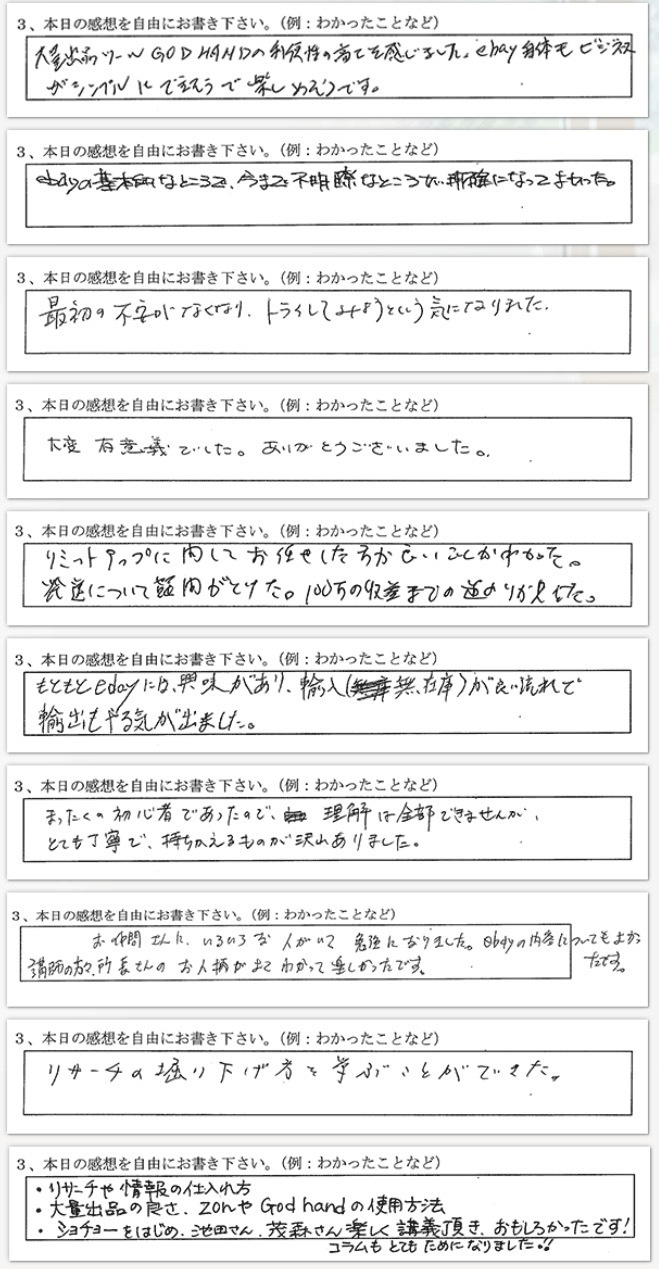 3、本日の感想を自由にお書き下さい。（例：わかったことなど）
大量出品ツール GOD HANDの利便性の高さを感じました。ebay自体もビジネス
がシンプルにできそうで楽しめそうです。
3、本日の感想を自由にお書き下さい。（例：わかったことなど）
ebayの基本的なところで、今まで不明瞭なところが、明確になってよかった。
3、本日の感想を自由にお書き下さい。（例：わかったことなど）
最初の不安がなくなり、トライしてみようという気になりました。
3、本日の感想を自由にお書き下さい。（例：わかったことなど）
大変有意義でした。ありがとうございました。
3、本日の感想を自由にお書き下さい。（例：わかったことなど）
リミットアップに関してお任せした方が良いことがわかった。
発送について疑問がとけた。100万の収益までの道のりが見えた。
3、本日の感想を自由にお書き下さい。（例：わかったことなど）
もともとedayには、興味があり、輸入（無在庫）が良い流れで
輸出もやる気が出ました。
3、本日の感想を自由にお書き下さい。（例：わかったことなど）
まったくの初心者であったので、理解は全部できませんが、
とても丁寧で、持ちかえるものが沢山ありました。
3、本日の感想を自由にお書き下さい。（例：わかったことなど）
お仲間さんに、いろいろな人がいて 勉強になりました。ebayの内容についてもよかったです。
講師の方、所長さんのお人柄がよくわかって楽しかったです。
3、本日の感想を自由にお書き下さい。（例：わかったことなど）
リサーチの掘り下げ方を学ぶことができた。
3、本日の感想を自由にお書き下さい。（例：わかったことなど）
・リサーチや情報の仕入れ方
・大量出品の良さ、ZONやGod handの使用方法
・ショチョーをはじめ、池田さん、茂森さん楽しく講義頂き、おもしろかったです！
コラムもとてもためになりました!!